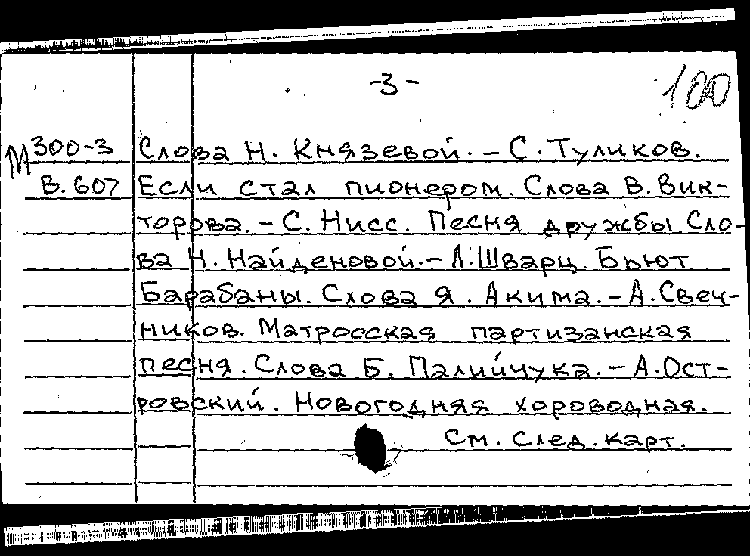 -3-
100
М 300-3 Слова Н. Князевой. – С. Туликов.
В. 607 Если стал пионером. Слова В. Вик-
торова. – С. Нисс. Песня дружбы Сло-
ва Н. Найденовой. – Л. Шварц. Бьют
Барабаны. Слова Я. Акима. – А. Свеч-
ников. Матросская партизанская
песня. Слова Б. Палийчука. – А. Ост-
ровский. Новогодняя хороводная.
См. след. карт.